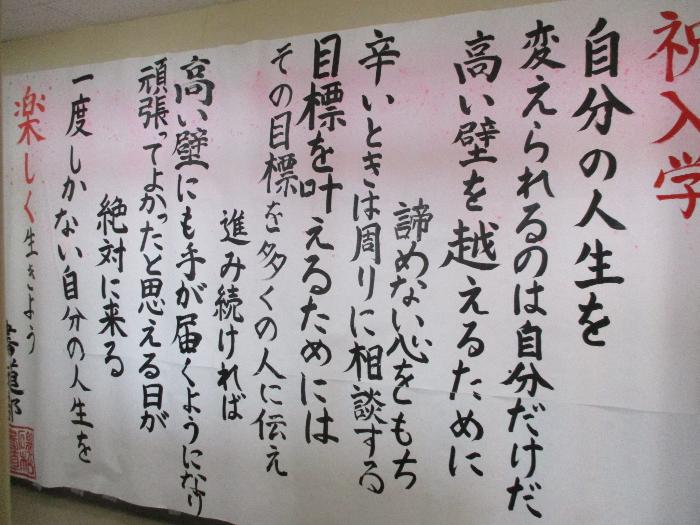 祝入学
自分の人生を
変えられるのは自分だけだ
高い壁を越えるために
諦めない心をもち
辛いときは周りに相談する
目標を叶えるためには
その目標を多くの人に伝え
進み続ければ
高い壁にも手が届くようになり
頑張ってよかったと思える日が
絶対に来る
一度しかない自分の人生を
楽しく生きよう
書道部